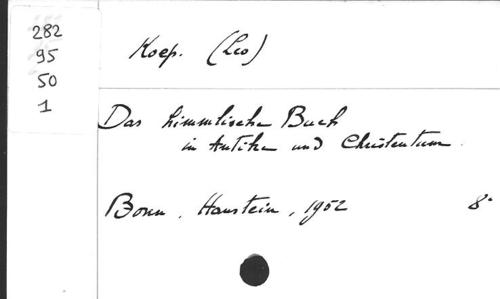 282
95
50
1
Koep. (Leo)
Das himmlische Buch
in Antike und Christentum.
Bonn, Hanstein, 1952 8°